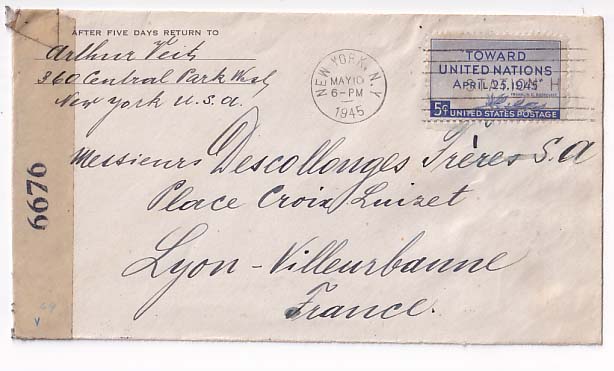 AFTER FIVE DAYS RETURN TO
Arthur Veit
360 Central Park West
New York U.S.A.
NEW YORK, N.Y.
MAY 10
6-PM
1945
TOWARD
UNITED NATIONS
APRIL, 25, 1945
5¢ UNITED STATES POSTAGE
Messieurs Descollonges Frères S.A
Place Croix Luizet
Lyon-Villeurbanne
France.
6676